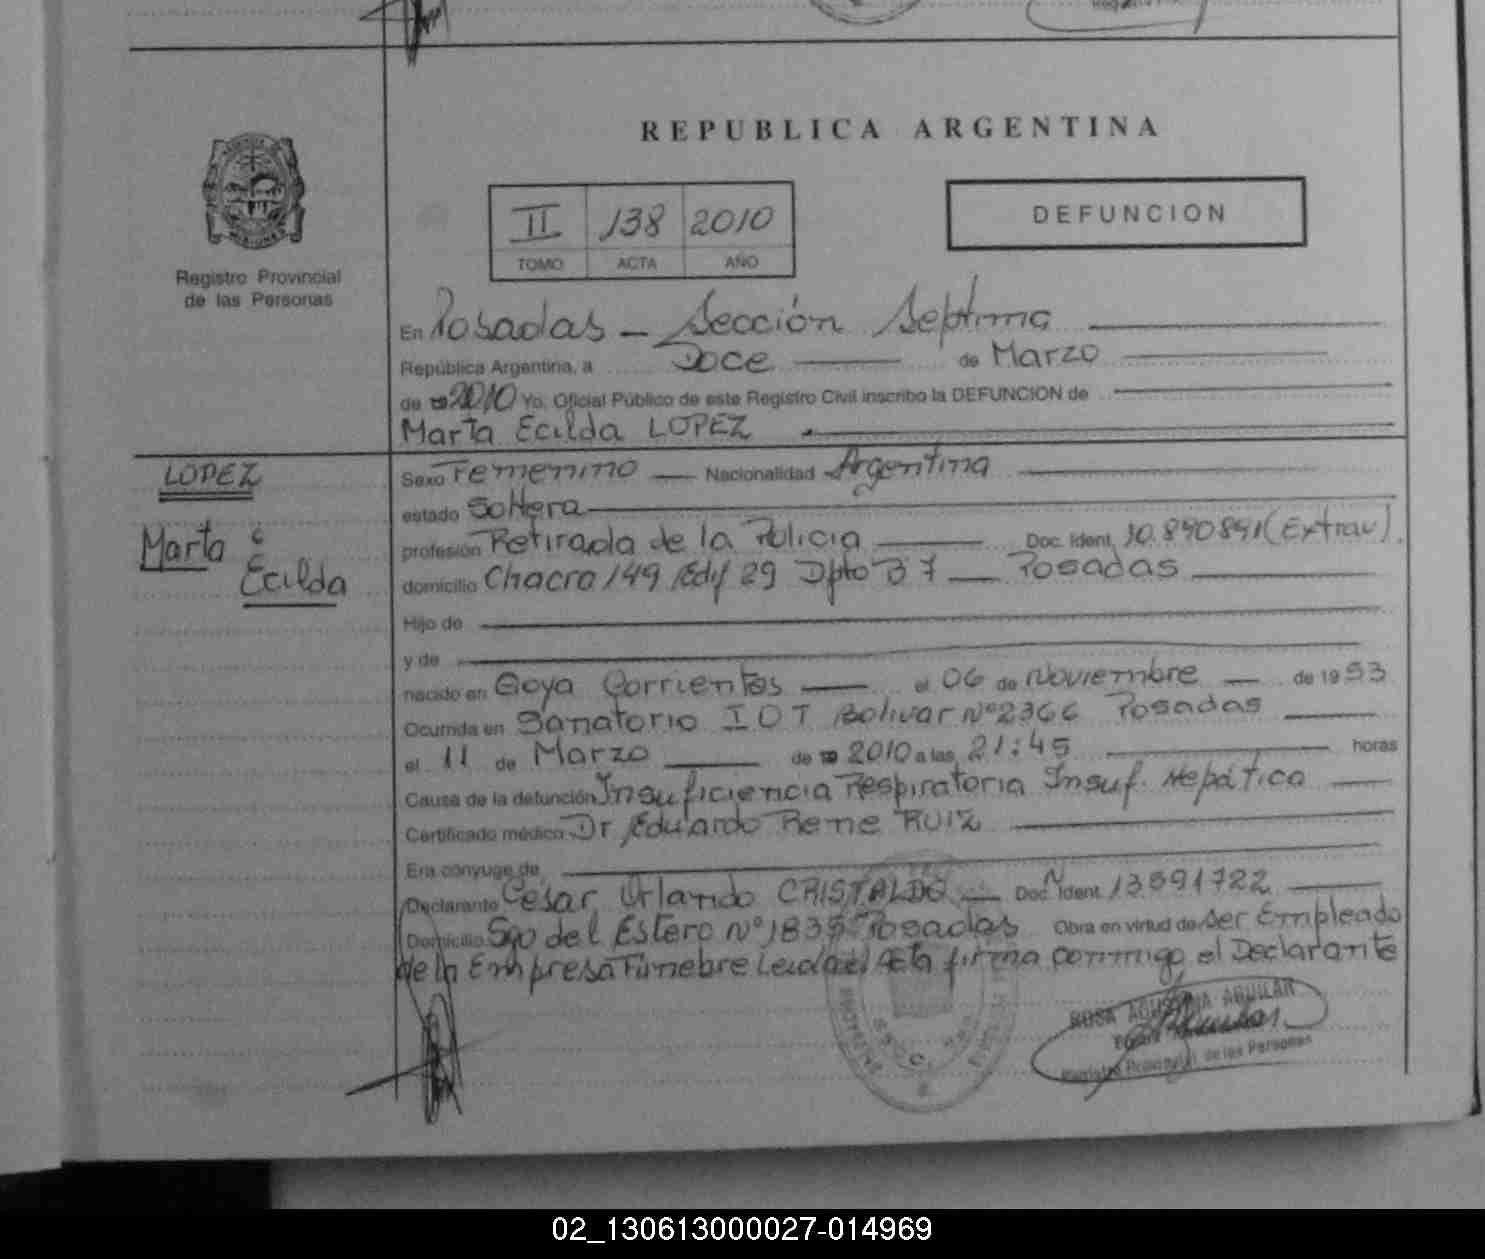 REPUBLICA ARGENTINA
II 138 2010
TOMO ACTA AÑO
DEFUNCION
Registro Provincial
de las Personas
En Posadas - Sección Septima
República Argentina, a Doce de Marzo
de 2010 Yo, Oficial Público de este Registro Civil inscribo la DEFUNCION de
Marta Ecilda LOPEZ
LOPEZ
Marta
Ecilda
Sexo Femenino Nacionalidad Argentina
estado Soltera
profesión Retirada de la Policia Doc. Ident. 10.890891 (Extrav).
domicilio Chacra 149 Edif 29 Dpto B 7 Posadas
Hijo de
y de
nacido en Goya Corrientes el 06 de Noviembre de 1953
Ocurrida en Sanatorio IOT Bolivar Nº 2366 Posadas
el 11 de Marzo de 2010 a las 21:45 horas
Causa de la defunción Insuficiencia Respiratoria Insuf. Hepática
Certificado médico Dr. Eduardo Rene RUIZ
Era cónyuge de
Declarante Cesar Orlando CRISTALDO Doc. Ident. 13591722
Domicilio Sgo del Estero Nº 1835 Posadas Obra en virtud de Ser Empleado
de la Empresa Funebre Leida el Acta firma conmigo el Declarante
ROSA AGUSTINA AGUILAR
Registro Provincial de las Personas
02_130613000027-014969